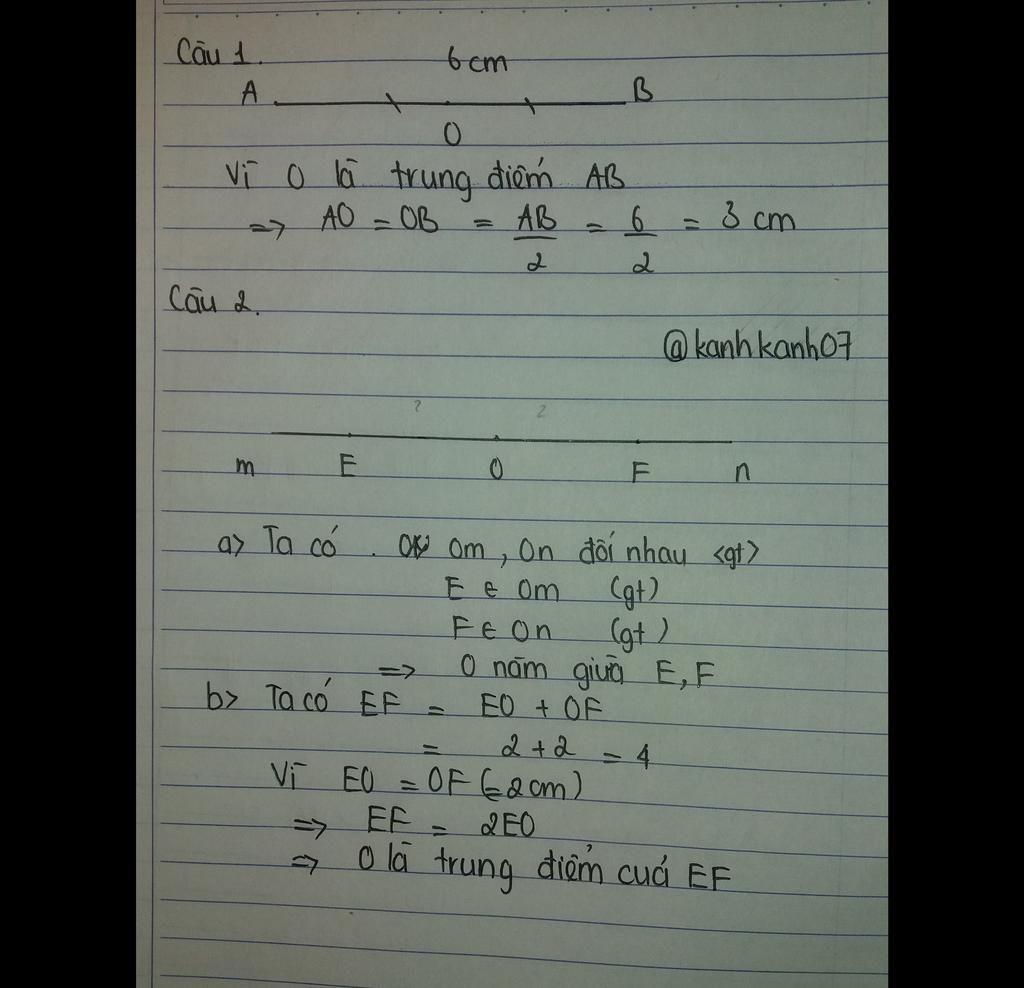 Câu 1.
6 cm
A B
O
Vì O là trung điểm AB
=> AO = OB = AB/2 = 6/2 = 3 cm
Câu 2.
@kanhkanh07
? 2
m E O F n
a> Ta có . Om, On đối nhau <gt>
E ∈ Om (gt)
F ∈ On (gt)
=> O nằm giữa E, F
b> Ta có EF = EO + OF
= 2 + 2 = 4
Vì EO = OF (=2cm)
=> EF = 2EO
=> O là trung điểm của EF